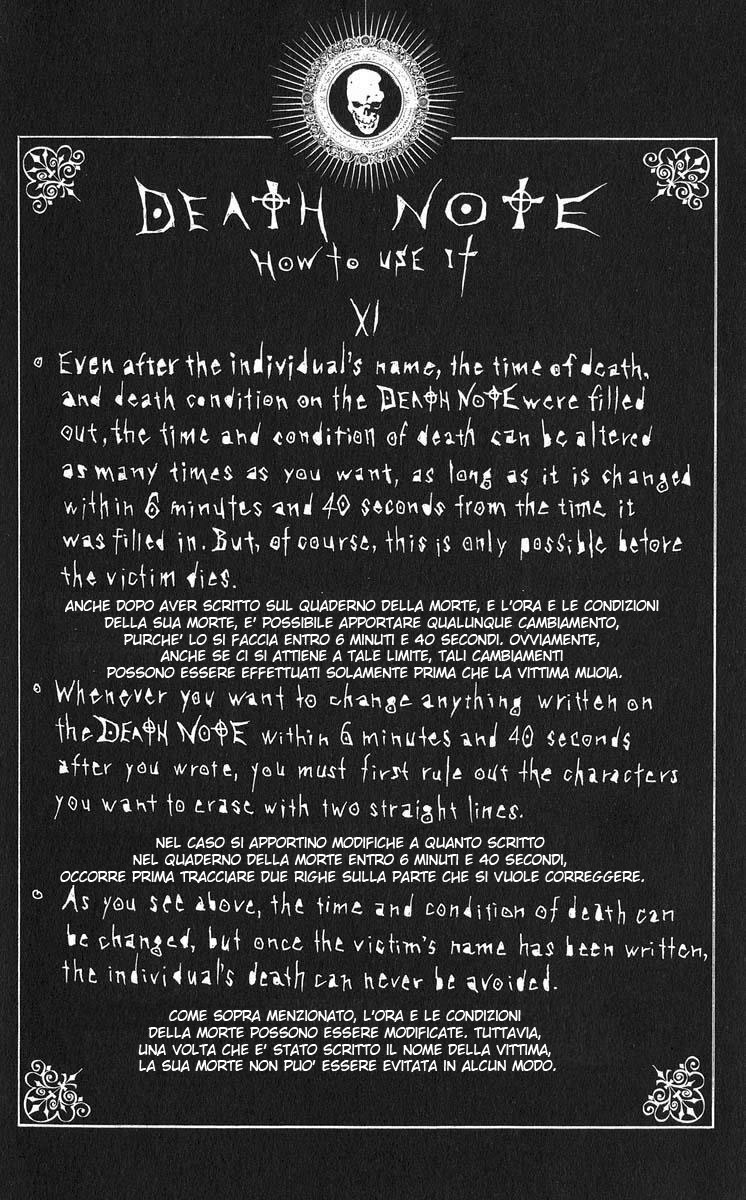 DEATH NOTE
HOW to USE It
XI
Even after the individual's name, the time of death,
and death condition on the DEATH NOTE were filled
out, the time and condition of death can be altered
as many times as you want, as long as it is changed
within 6 minutes and 40 seconds from the time it
was filled in. But, of course, this is only possible before
the victim dies.
ANCHE DOPO AVER SCRITTO SUL QUADERNO DELLA MORTE, E L'ORA E LE CONDIZIONI
DELLA SUA MORTE, E' POSSIBILE APPORTARE QUALUNQUE CAMBIAMENTO,
PURCHE' LO SI FACCIA ENTRO 6 MINUTI E 40 SECONDI. OVVIAMENTE,
ANCHE SE CI SI ATTIENE A TALE LIMITE, TALI CAMBIAMENTI
POSSONO ESSERE EFFETTUATI SOLAMENTE PRIMA CHE LA VITTIMA MUOIA.
Whenever you want to change anything written on
the DEATH NOTE within 6 minutes and 40 seconds
after you wrote, you must first rule out the characters
you want to erase with two straight lines.
NEL CASO SI APPORTINO MODIFICHE A QUANTO SCRITTO
NEL QUADERNO DELLA MORTE ENTRO 6 MINUTI E 40 SECONDI,
OCCORRE PRIMA TRACCIARE DUE RIGHE SULLA PARTE CHE SI VUOLE CORREGGERE.
As you see above, the time and condition of death can
be changed, but once the victim's name has been written,
the individual's death can never be avoided.
COME SOPRA MENZIONATO, L'ORA E LE CONDIZIONI
DELLA MORTE POSSONO ESSERE MODIFICATE. TUTTAVIA,
UNA VOLTA CHE E' STATO SCRITTO IL NOME DELLA VITTIMA,
LA SUA MORTE NON PUO' ESSERE EVITATA IN ALCUN MODO.